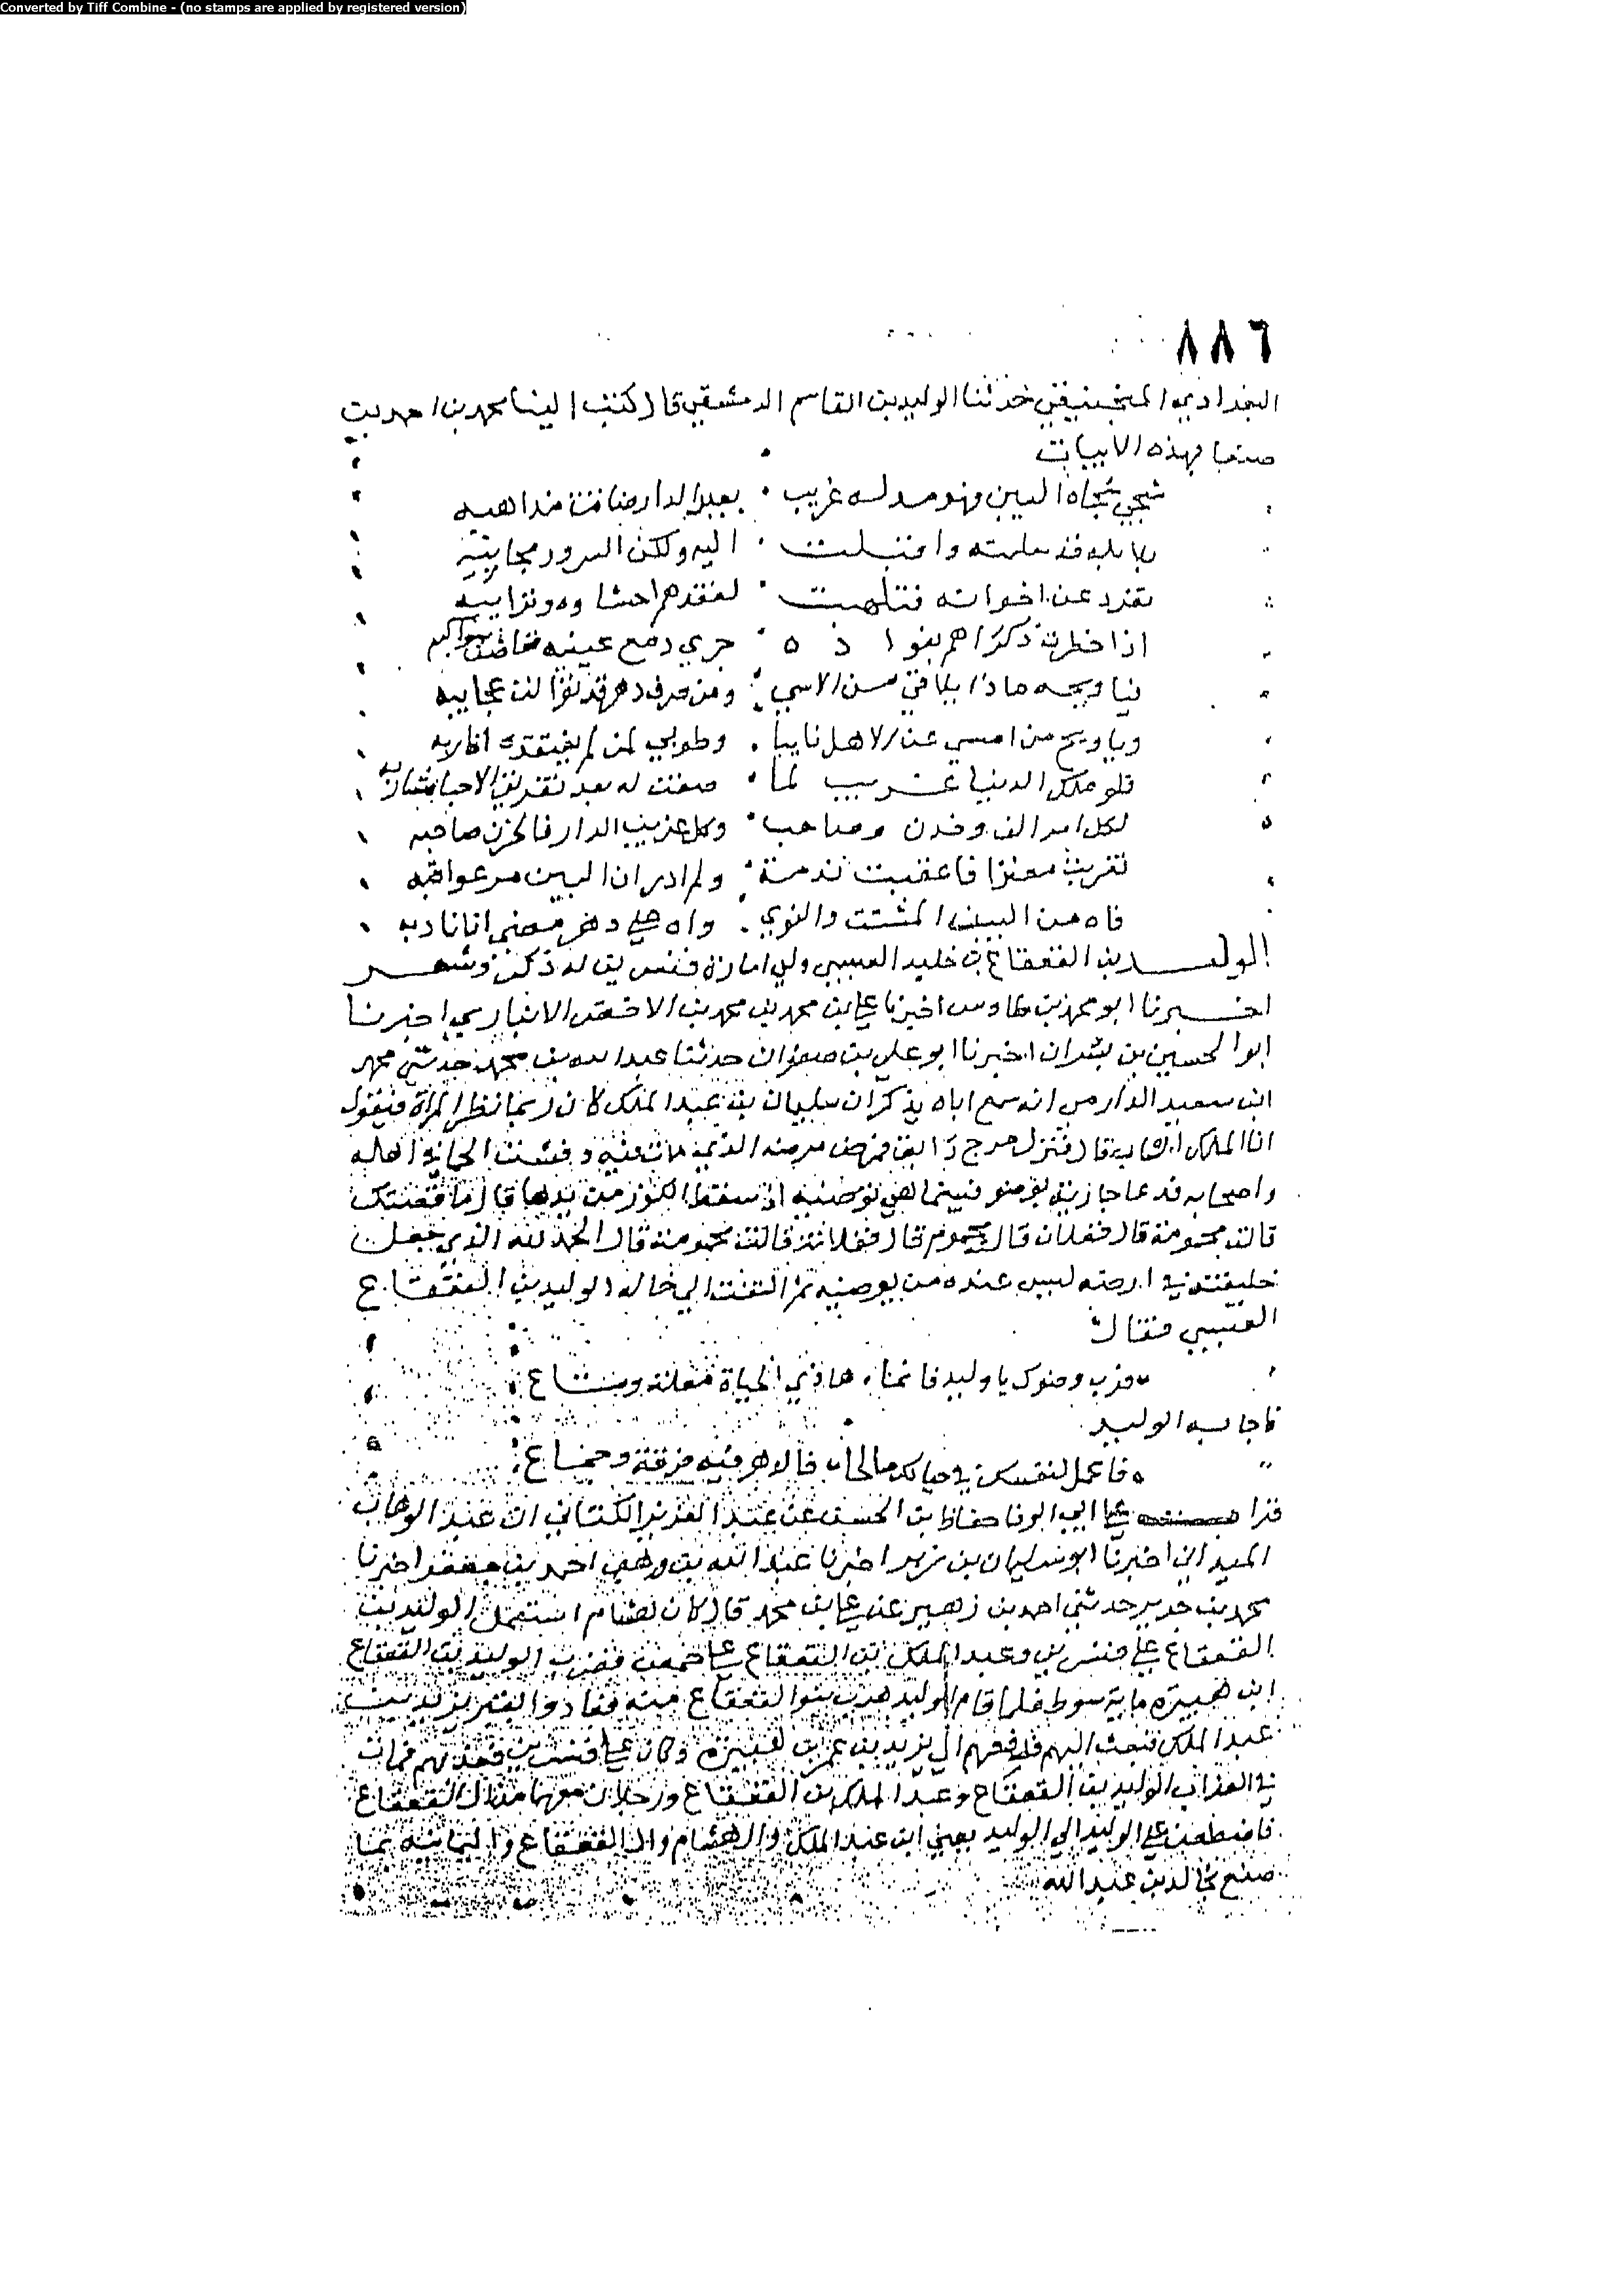 Converted by Tiff Combine - (no stamps are applied by registered version)
٨٨٦
البغدادي المنجنيقي حدثنا الوليد بن القاسم الدمشقي قال كتب الينا محمد بن احمد بن
بهذه الابيات
شجي شجاه البين فهو مدله غريب بعيد الدار ضاقت مذاهبه
بلابله قد واقبلت اليه ولكن السرور مجانبه
تفرد عن اخوانه فتلهبت لفقدهم احشاوه وترايبه
اذا خطرت ذكراهم بفواده جري دمع عينيه ففاضت سواكبه
فيا ويحه ماذا يلاقي من الاسي ومن صرف دهر قد توالت عجايبه
ويا ويح من امسي عن الاهل نايبا وطوبي لمن لم يفتقده اقاربه
فلو ملك الدنيا غريب لما صفت له بعد تفريق الاحبا مشاربه
لكل امر الف وخدن وصاحب وكل غريب الدار فالحزن صاحبه
تغربت مغترا فاعقبت ندمة ولم ادر ان البين مر عواقبه
فاه من البين المشتت والنوي واه علي دهر مضي انا نادبه
الوليد بن القعقاع بن خليد العبسي ولي امارة قنسرين له ذكر وشعر
اخبرنا ابو محمد بن طاوس اخبرنا علي بن محمد بن محمد بن الاخضر الانباري اخبرنا
ابو الحسين بن بشران اخبرنا ابو علي بن صفوان حدثنا عبد الله بن محمد حدثني محمد
ابن سعيد الدارمي انه سمع اباه يذكر ان سليمان بن عبد الملك كان ربما نظر المراة فيقول
انا الملك الشاب قال فنزل مرج دابق فمرض مرضه الذي مات فيه وفشت الحمي في اهله
واصحابه فدعا جارية بوضو فبينما هي توضيه اذ سقط الكوز من يدها قال ما قصتك
قالت محمومة قال ففلان قال محموم قال ففلانة قالت محمومة قال الحمد لله الذي جعل
خليفته في ارضه ليس عنده من يوضيه ثم التفت الي خاله الوليد بن القعقاع
العبسي فقال
قرب وضوك يا وليد فانما هاذي الحياة تعلة ومتاع
فاجابه الوليد
فاعمل لنفسك في حياتك صالحا فالدهر فيه فرقة وجماع
قرا علي ابي الوفا حفاظ بن الحسن عن عبد العزيز الكتاني ان عبد الوهاب
الميداني اخبرنا ابو سليمان بن زبر اخبرنا عبد الله بن احمد بن جعفر اخبرنا
محمد بن جرير حدثني احمد بن زهير عن علي بن محمد قال كان هشام استعمل الوليد بن
القعقاع علي قنسرين وعبد الملك بن القعقاع علي حمص فضرب الوليد بن القعقاع
ابن هبيرة ماية سوط فلما قام الوليد هرب بنو القعقاع منه فعاذوا بقبر يزيد بن
عبد الملك فبعث اليهم فدفعهم الي يزيد بن عمر بن هبيرة وكان علي قنسرين فعذبهم فمات
في العذاب الوليد بن القعقاع وعبد الملك بن القعقاع ورجلان معهما من ال القعقاع
فاضطغن علي الوليد الي الوليد يعني ابن عبد الملك وال هشام وال القعقاع واليمانية بما
صنع خالد بن عبد الله